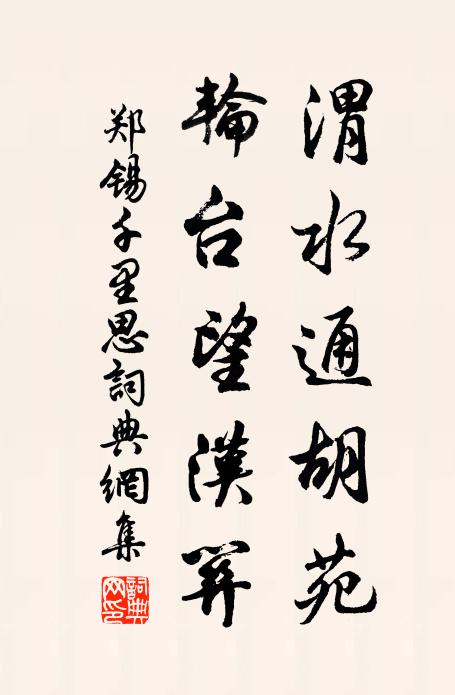 渭水通胡苑
輪台望漢關
郑锡千里思詞典網集
詞典
网印